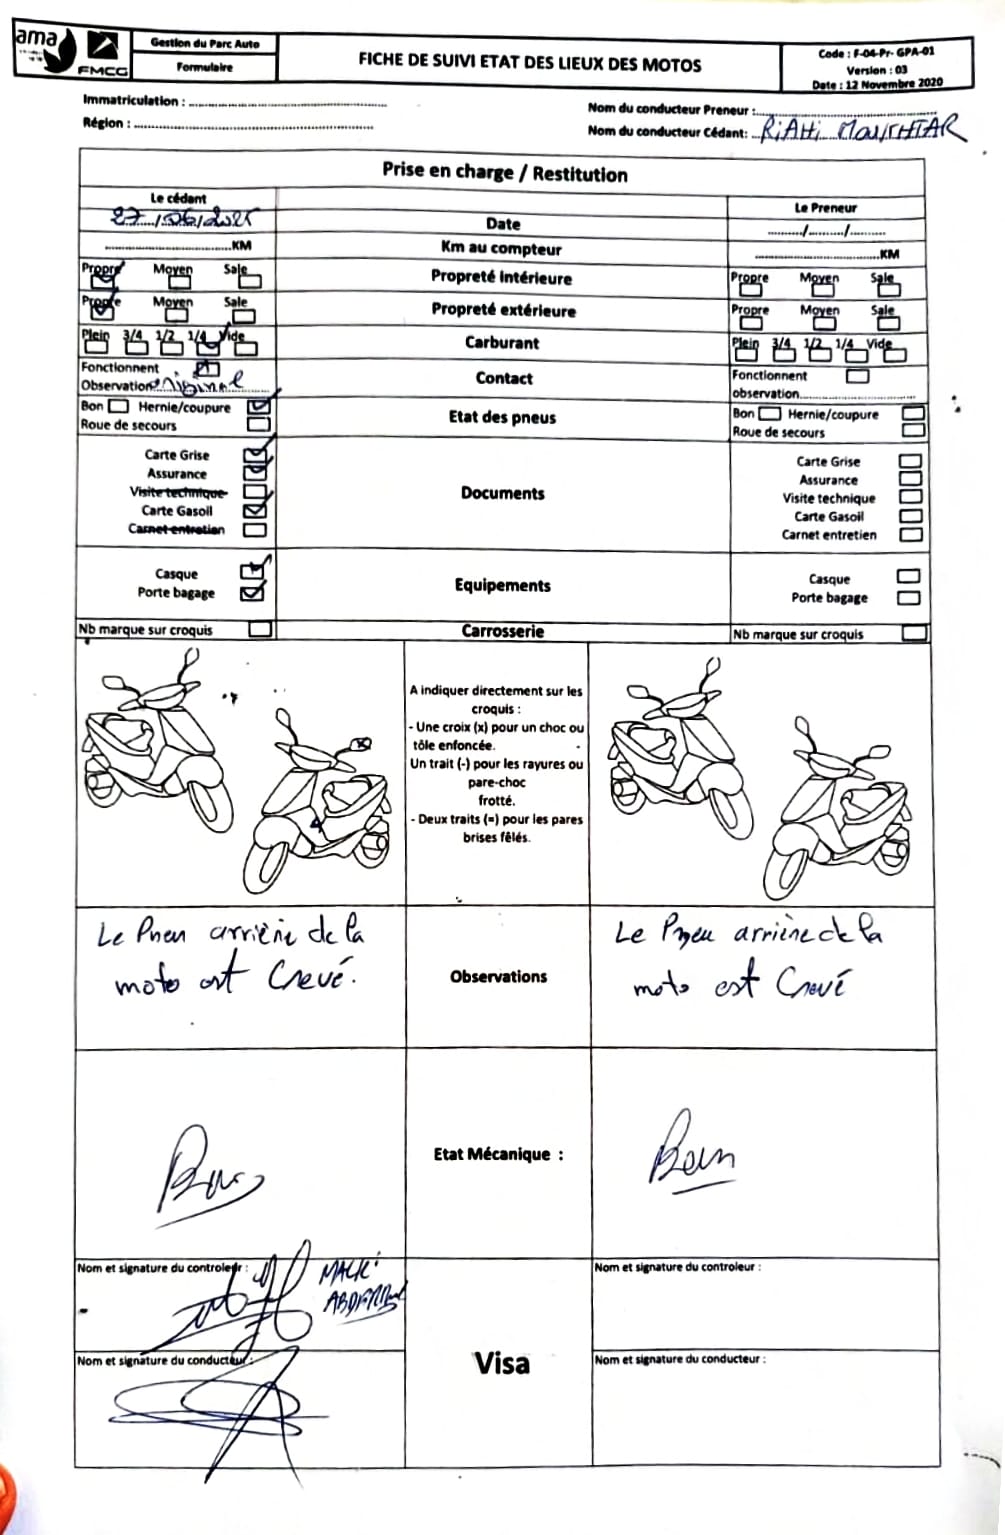 ama
FMCG
Gestion du Parc Auto
Formulaire
FICHE DE SUIVI ETAT DES LIEUX DES MOTOS
Code : F-04-Pr- GPA-01
Version : 03
Date : 12 Novembre 2020
Immatriculation : ................
Région : ................
Nom du conducteur Preneur : ................
Nom du conducteur Cédant: RiAHi MOUCHTAR
Prise en charge / Restitution
Le cédant
Le Preneur
27/06/2025
Date
........../........../..........
................KM
Km au compteur
................KM
Propre Moyen Sale
Propreté intérieure
Propre Moyen Sale
Propre Moyen Sale
Propreté extérieure
Propre Moyen Sale
Plein 3/4 1/2 1/4 Vide
Carburant
Plein 3/4 1/2 1/4 Vide
Fonctionnent
Observation original
Contact
Fonctionnent
observation................
Bon Hernie/coupure
Roue de secours
Etat des pneus
Bon Hernie/coupure
Roue de secours
Carte Grise
Assurance
Visite technique
Carte Gasoil
Carnet entretien
Documents
Carte Grise
Assurance
Visite technique
Carte Gasoil
Carnet entretien
Casque
Porte bagage
Equipements
Casque
Porte bagage
Nb marque sur croquis
Carrosserie
Nb marque sur croquis
A indiquer directement sur les
croquis :
- Une croix (x) pour un choc ou
tôle enfoncée.
Un trait (-) pour les rayures ou
pare-choc
frotté.
- Deux traits (=) pour les pares
brises fêlés.
Le Pneu arrière de la
moto est Crevé.
Observations
Le Pneu arrière de la
moto est Crevé
Etat Mécanique :
Bon
Nom et signature du controleur :
MALKi
Nom et signature du controleur :
Nom et signature du conducteur :
Visa
Nom et signature du conducteur :